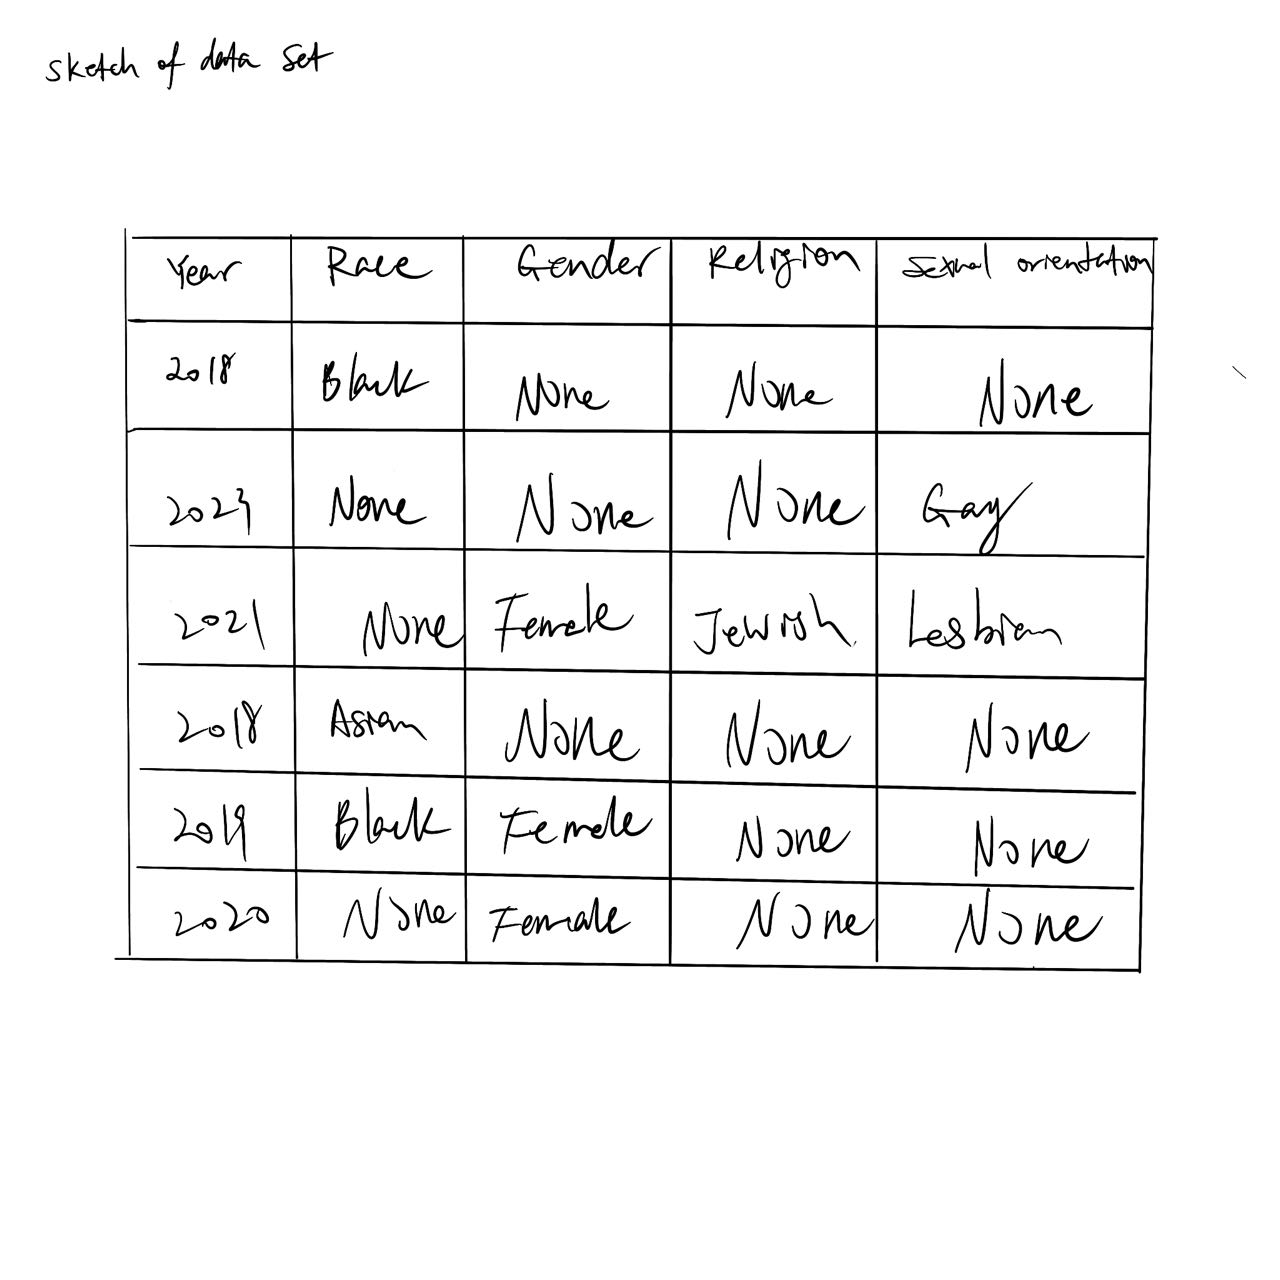 Sketch of data set
Year Race Gender Religion Sexual orientation
2018 Black None None None
2023 None None None Gay
2021 None Female Jewish Lesbian
2018 Asian None None None
2019 Black Female None None
2020 None Female None None